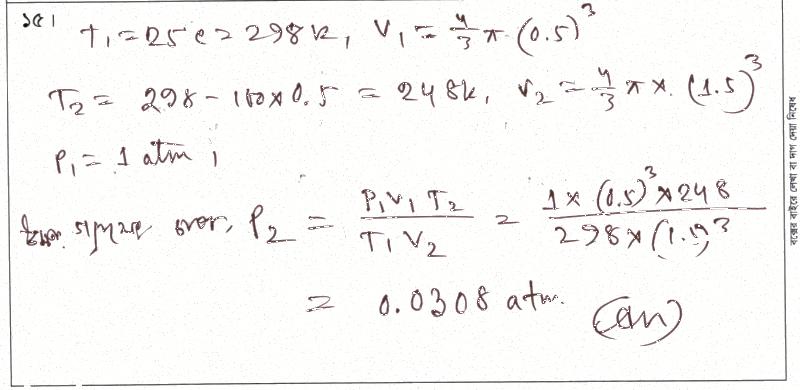 ১৫। t₁ = 25 c = 298 k, V₁ = 4/3 π (0.5)³
T₂ = 298 - 100×0.5 = 248k, V₂ = 4/3 π × (1.5)³
P₁ = 1 atm,
P₂ = P₁V₁T₂ / T₁V₂ = 1×(0.5)³×248 / 298×(1.5)³
= 0.0308 atm. (Ans)
বক্সের বাইরে লেখা বা দাগ দেয়া নিষেধ